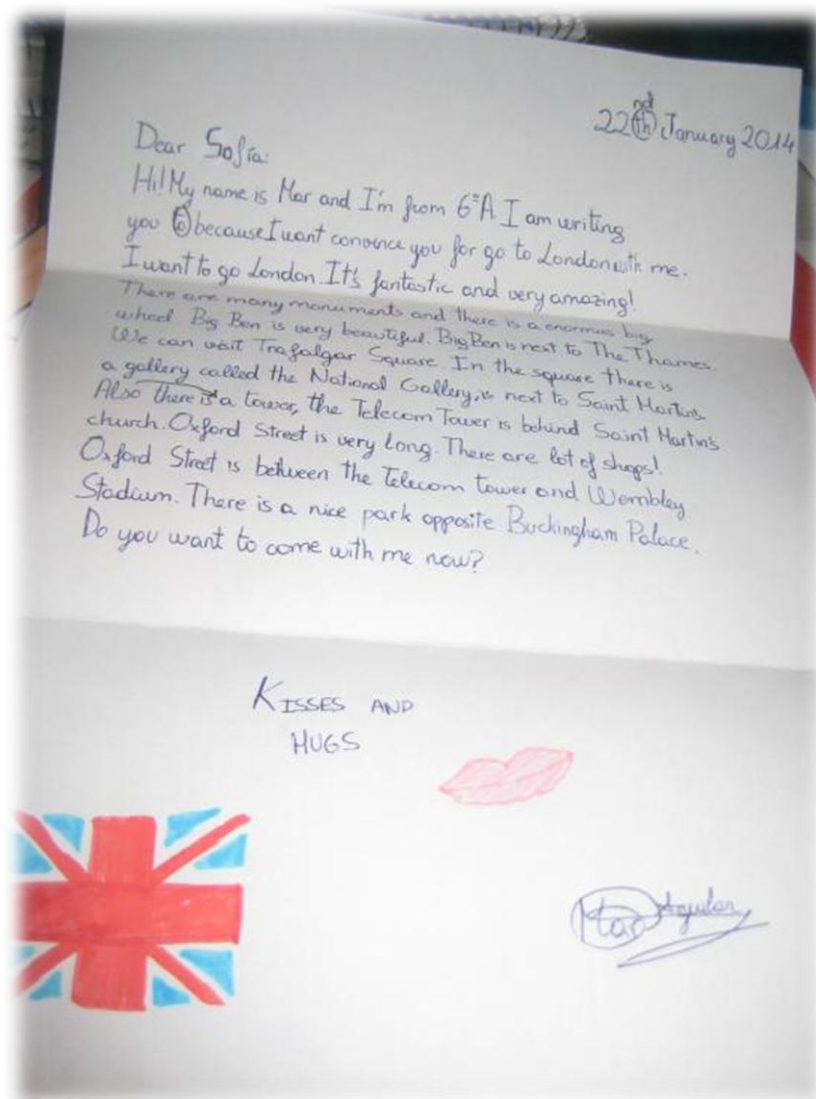 22th nd January 2014
Dear Sofía:
Hi! My name is Mar and I'm from 6ºA I am writing
you to because I want convince you for go to London with me.
I want to go London. It's fantastic and very amazing!
There are many monuments and there is a enormus big
wheel. Big Ben is very beautiful. Big Ben is next to The Thames.
We can visit Trafalgar Square. In the square there is
a gallery called the National Gallery, is next to Saint Martin's
Also there is a tower, the Telecom Tower is behind Saint Martin's
church. Oxford Street is very long. There are lot of shops!
Oxford Street is between the Telecom tower and Wembley
Stadium. There is a nice park opposite Buckingham Palace.
Do you want to come with me now?
KISSES AND
HUGS
Mar Aguilar